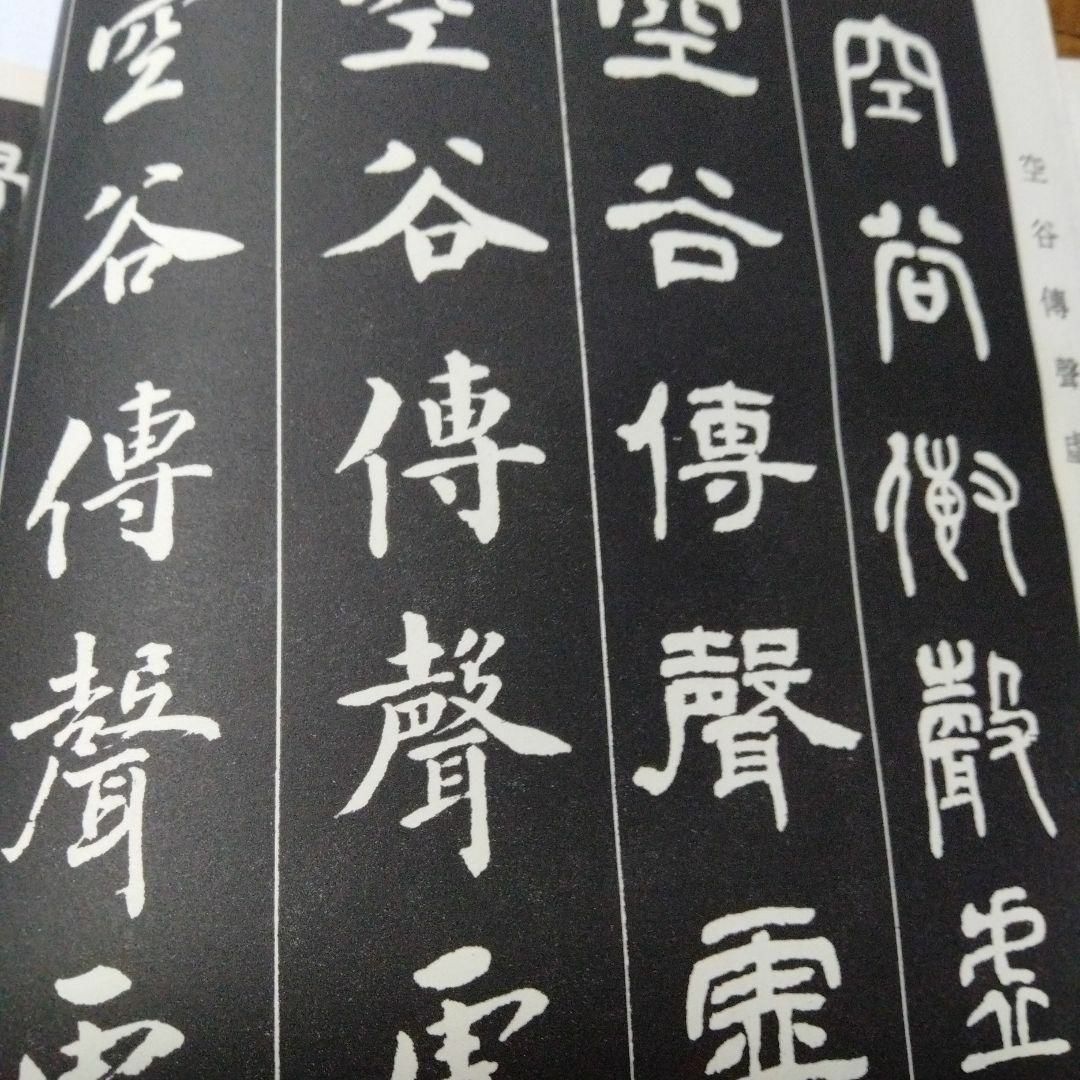 空谷傳聲虛
空谷傳聲虛
空谷傳聲虛
空谷傳聲
空谷傳聲